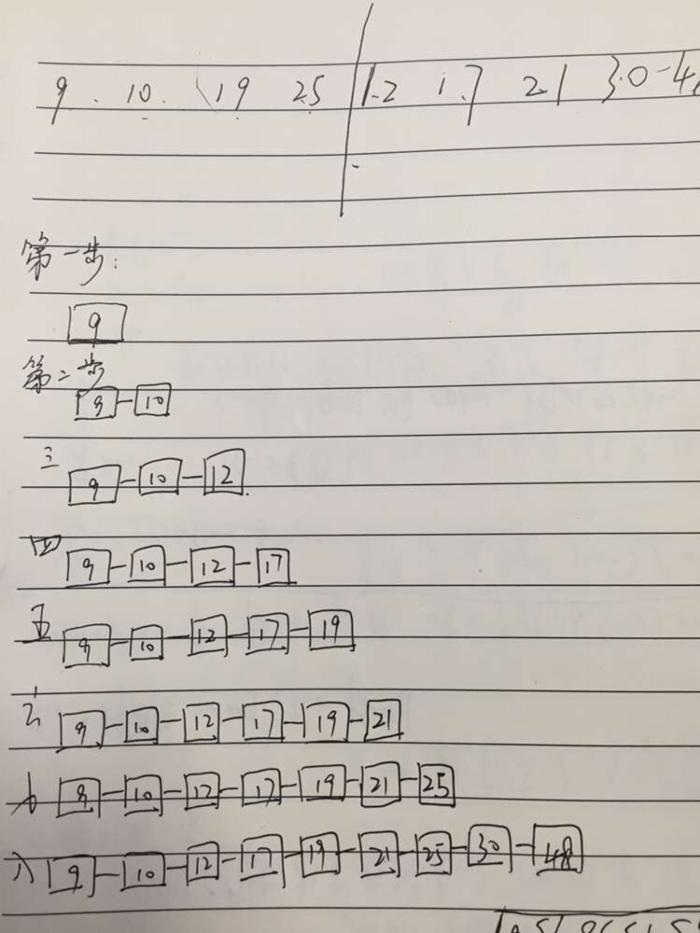 9 10 19 25 12 17 21 30
第一步:
9
第二步
9 - 10
三
9 - 10 - 12
四
9 - 10 - 12 - 17
五
9 - 10 - 12 - 17 - 19
六
9 - 10 - 12 - 17 - 19 - 21
9 - 10 - 12 - 17 - 19 - 21 - 25
八
9 - 10 - 12 - 17 - 19 - 21 - 25 - 30 - 48